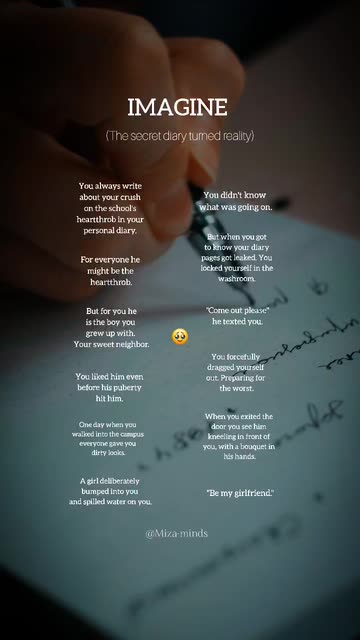 IMAGINE
(The secret diary turned reality)
You always write
about your crush
on the school's
heartthrob in your
personal diary.
For everyone he
might be the
heartthrob.
But for you he
is the boy you
grew up with.
Your sweet neighbor.
You liked him even
before his puberty
hit him.
One day when you
walked into the campus
everyone gave you
dirty looks.
A girl deliberately
bumped into you
and spilled water on you.
You didn't know
what was going on.
But when you got
to know your diary
pages got leaked. You
locked yourself in the
washroom.
"Come out please"
he texted you.
You forcefully
dragged yourself
out. Preparing for
the worst.
When you exited the
door you see him
kneeling in front of
you, with a bouquet in
his hands.
"Be my girlfriend."
@Miza-minds